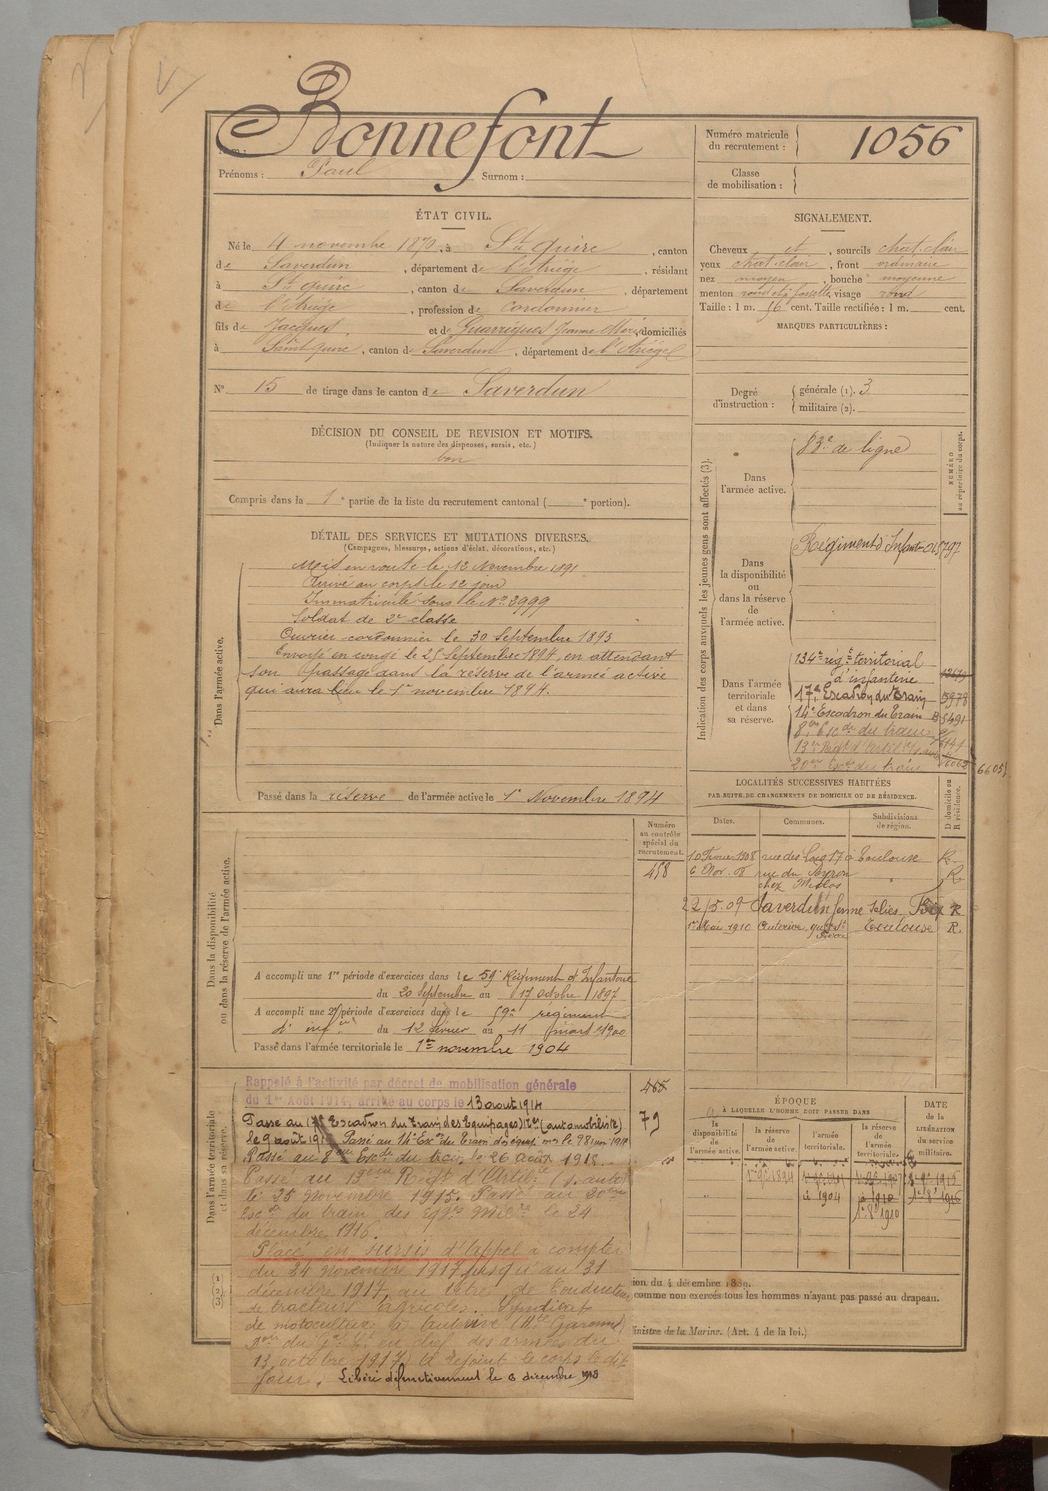 Bonnefont
Nom :
Prénoms : Paul Surnom :
Numéro matricule du recrutement : 1056
Classe de mobilisation :
ÉTAT CIVIL.
Né le 4 novembre 1870, à St Quirc, canton
de Saverdun, département de l'Ariège, résidant
à St Quirc, canton de Saverdun, département
de l'Ariège, profession de cordonnier
fils de Jacques et de Guarrigues Jeanne Marie, domiciliés
à Saint Quirc, canton de Saverdun, département de l'Ariège
N° 15 de tirage dans le canton de Saverdun
SIGNALEMENT.
Cheveux et, sourcils chat. clair
yeux chat. clair, front ordinaire
nez moyen, bouche moyenne
menton rond et à fossette, visage rond
Taille : 1 m. 56 cent. Taille rectifiée : 1 m. cent.
MARQUES PARTICULIÈRES :
Degré d'instruction : générale (1). 3
militaire (2).
DÉCISION DU CONSEIL DE REVISION ET MOTIFS.
(Indiquer la nature des dispenses, sursis, etc.)
bon
Compris dans la 1e partie de la liste du recrutement cantonal ( e portion).
DÉTAIL DES SERVICES ET MUTATIONS DIVERSES.
(Campagnes, blessures, actions d'éclat, décorations, etc.)
Dans l'armée active.
Mis en route le 12 Novembre 1891
Arrivé au corps le 12 jour
Immatriculé sous le N° 3999
Soldat de 2e classe
Ouvrier cordonnier le 30 Septembre 1893
Envoyé en congé le 25 Septembre 1894, en attendant
son passage dans la réserve de l'armée active
qui aura lieu le 1er novembre 1894.
Passé dans la réserve de l'armée active le 1er Novembre 1894
Indication des corps auxquels les jeunes gens sont affectés (3).
NUMÉRO au répertoire du corps.
Dans l'armée active.
83e de ligne
Dans la disponibilité ou dans la réserve de l'armée active.
Régiment d'Infant
Dans l'armée territoriale et dans sa réserve.
134e rég.t territorial
d'infanterie
17e Escadron du Train 5978
14e Escadron du Train
8em Escon du train
20em Escon du train
LOCALITÉS SUCCESSIVES HABITÉES
PAR SUITE DE CHANGEMENTS DE DOMICILE OU DE RÉSIDENCE.
Dates. Communes. Subdivisions de région. D domicile ou R résidence.
10 Février 1908 rue des Lois 17 à Toulouse R.
6 Nov. 08 rue du R.
chez
22/5.09 Saverdun ferme Foix R
1er Mai 1910 Auterive, Toulouse R.
Dans la disponibilité ou dans la réserve de l'armée active.
Numéro au contrôle spécial du recrutement.
458
A accompli une 1re période d'exercices dans le 59e Régiment d'Infanterie
du 20 Septembre au 17 octobre 1897
A accompli une 2e période d'exercices dans le 59me régiment
d'infrie du 12 février au 11 mars 1900
Passé dans l'armée territoriale le 1er novembre 1904
Dans l'armée territoriale et dans sa réserve.
Rappelé à l'activité par décret de mobilisation générale
du 1er Août 1914, arrivé au corps le 13 août 1914
79
Passé au 17e Escadron du Train des Equipages Mres (automobiliste)
le 9 août 191 Passé au 14e
Passé au 8em Escon du train, le 26 août 191
Passé au 13ème Régt d'Artilie (s. auto)
le 25 novembre 1915. Passé au 20ème
Escon du train des Eqges Mires le 24
décembre 1916.
Placé en sursis d'appel à compter
du 24 novembre 1917 jusqu'au 31
décembre 1917, au titre de Conducteur
de tracteurs agricoles. Syndicat
de motoculture à Auterive (Hte Garonne)
13 octobre 1917) a rejoint le corps le dit
jour. Libéré définitivement le 6 décembre 1918
ÉPOQUE
À LAQUELLE L'HOMME DOIT PASSER DANS
la disponibilité de l'armée active. la réserve de l'armée active. l'armée territoriale. la réserve de l'armée territoriale.
DATE de la LIBÉRATION du service militaire.
1er 9bre 1894
à 1904 à 1910
1er 8bre 1910
ion du 4 décembre 1889.
comme non exercés tous les hommes n'ayant pas passé au drapeau.
inistre de la Marine. (Art. 4 de la loi.)